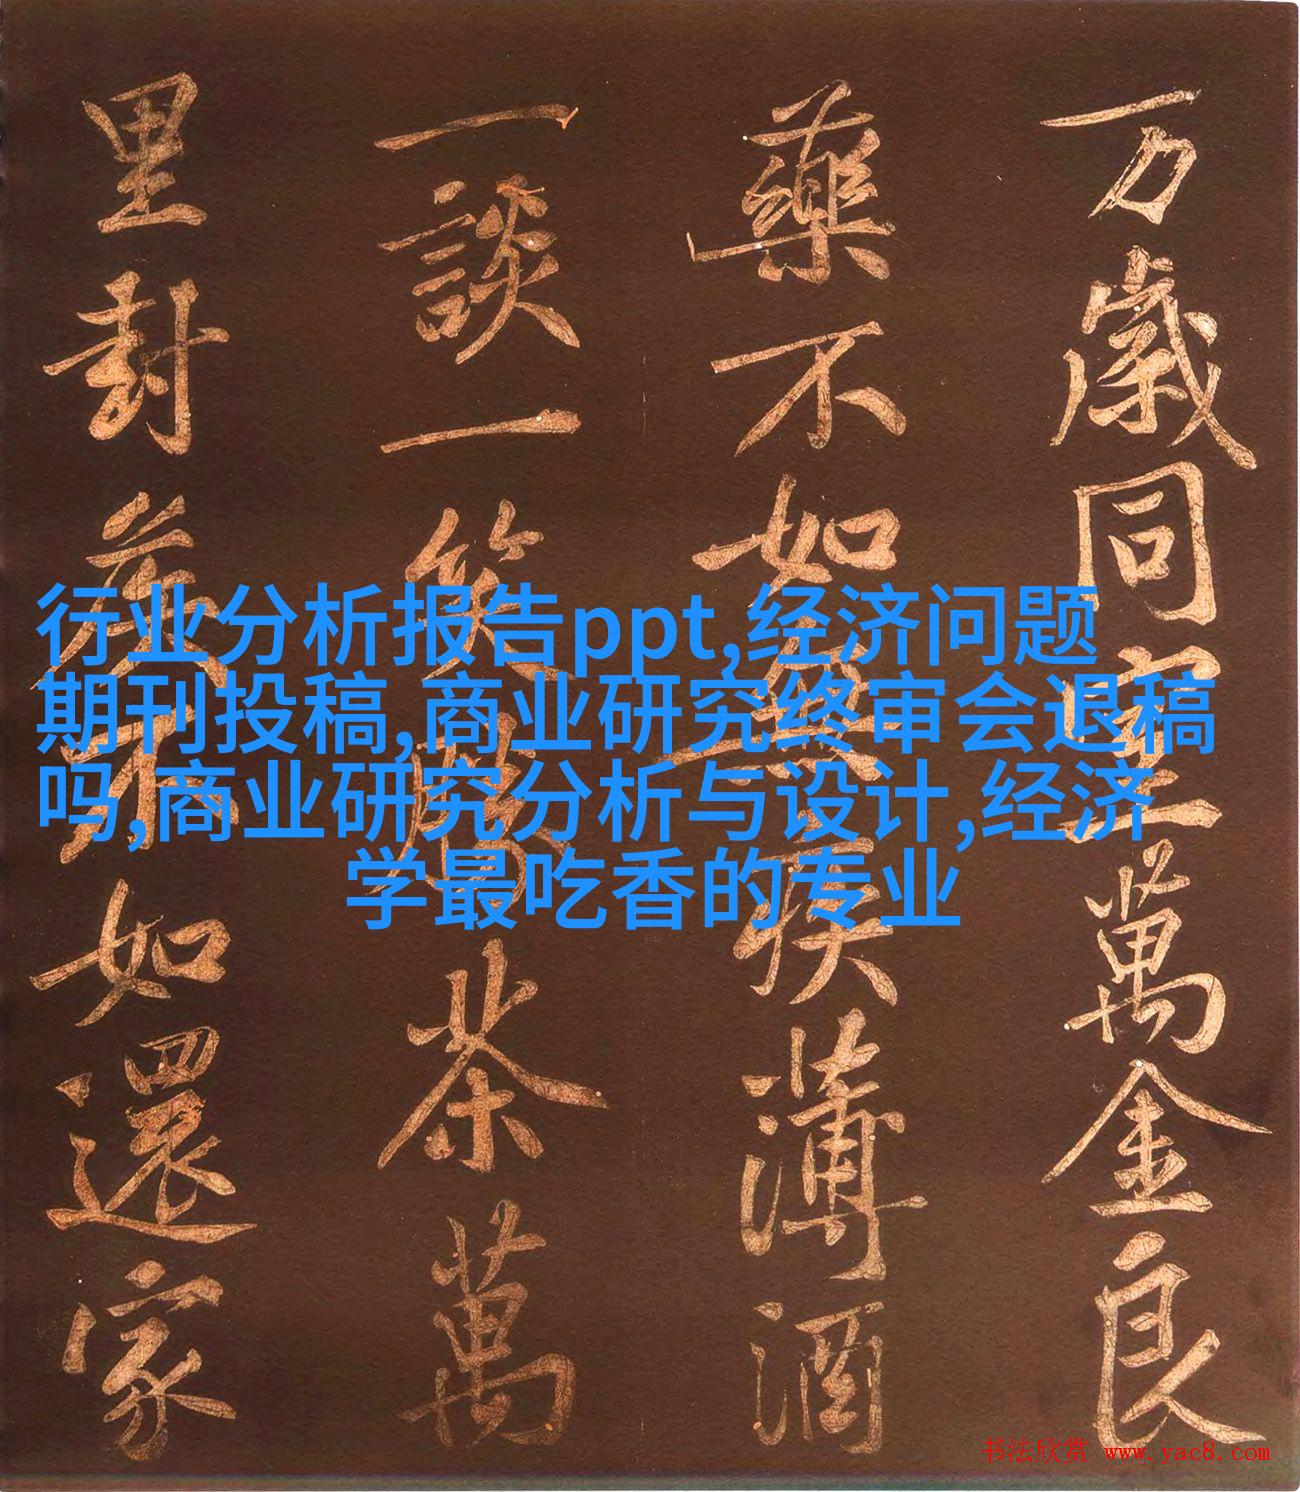 万歲同室萬金良
藥不如無疾薄酒
一談一笑勝茶萬
里封矦不如還家
行业分析报告ppt,经济问题
期刊投稿,商业研究终审会退稿
吗,商业研究分析与设计,经济
学最吃香的专业
书法欣赏 www.yac8.com